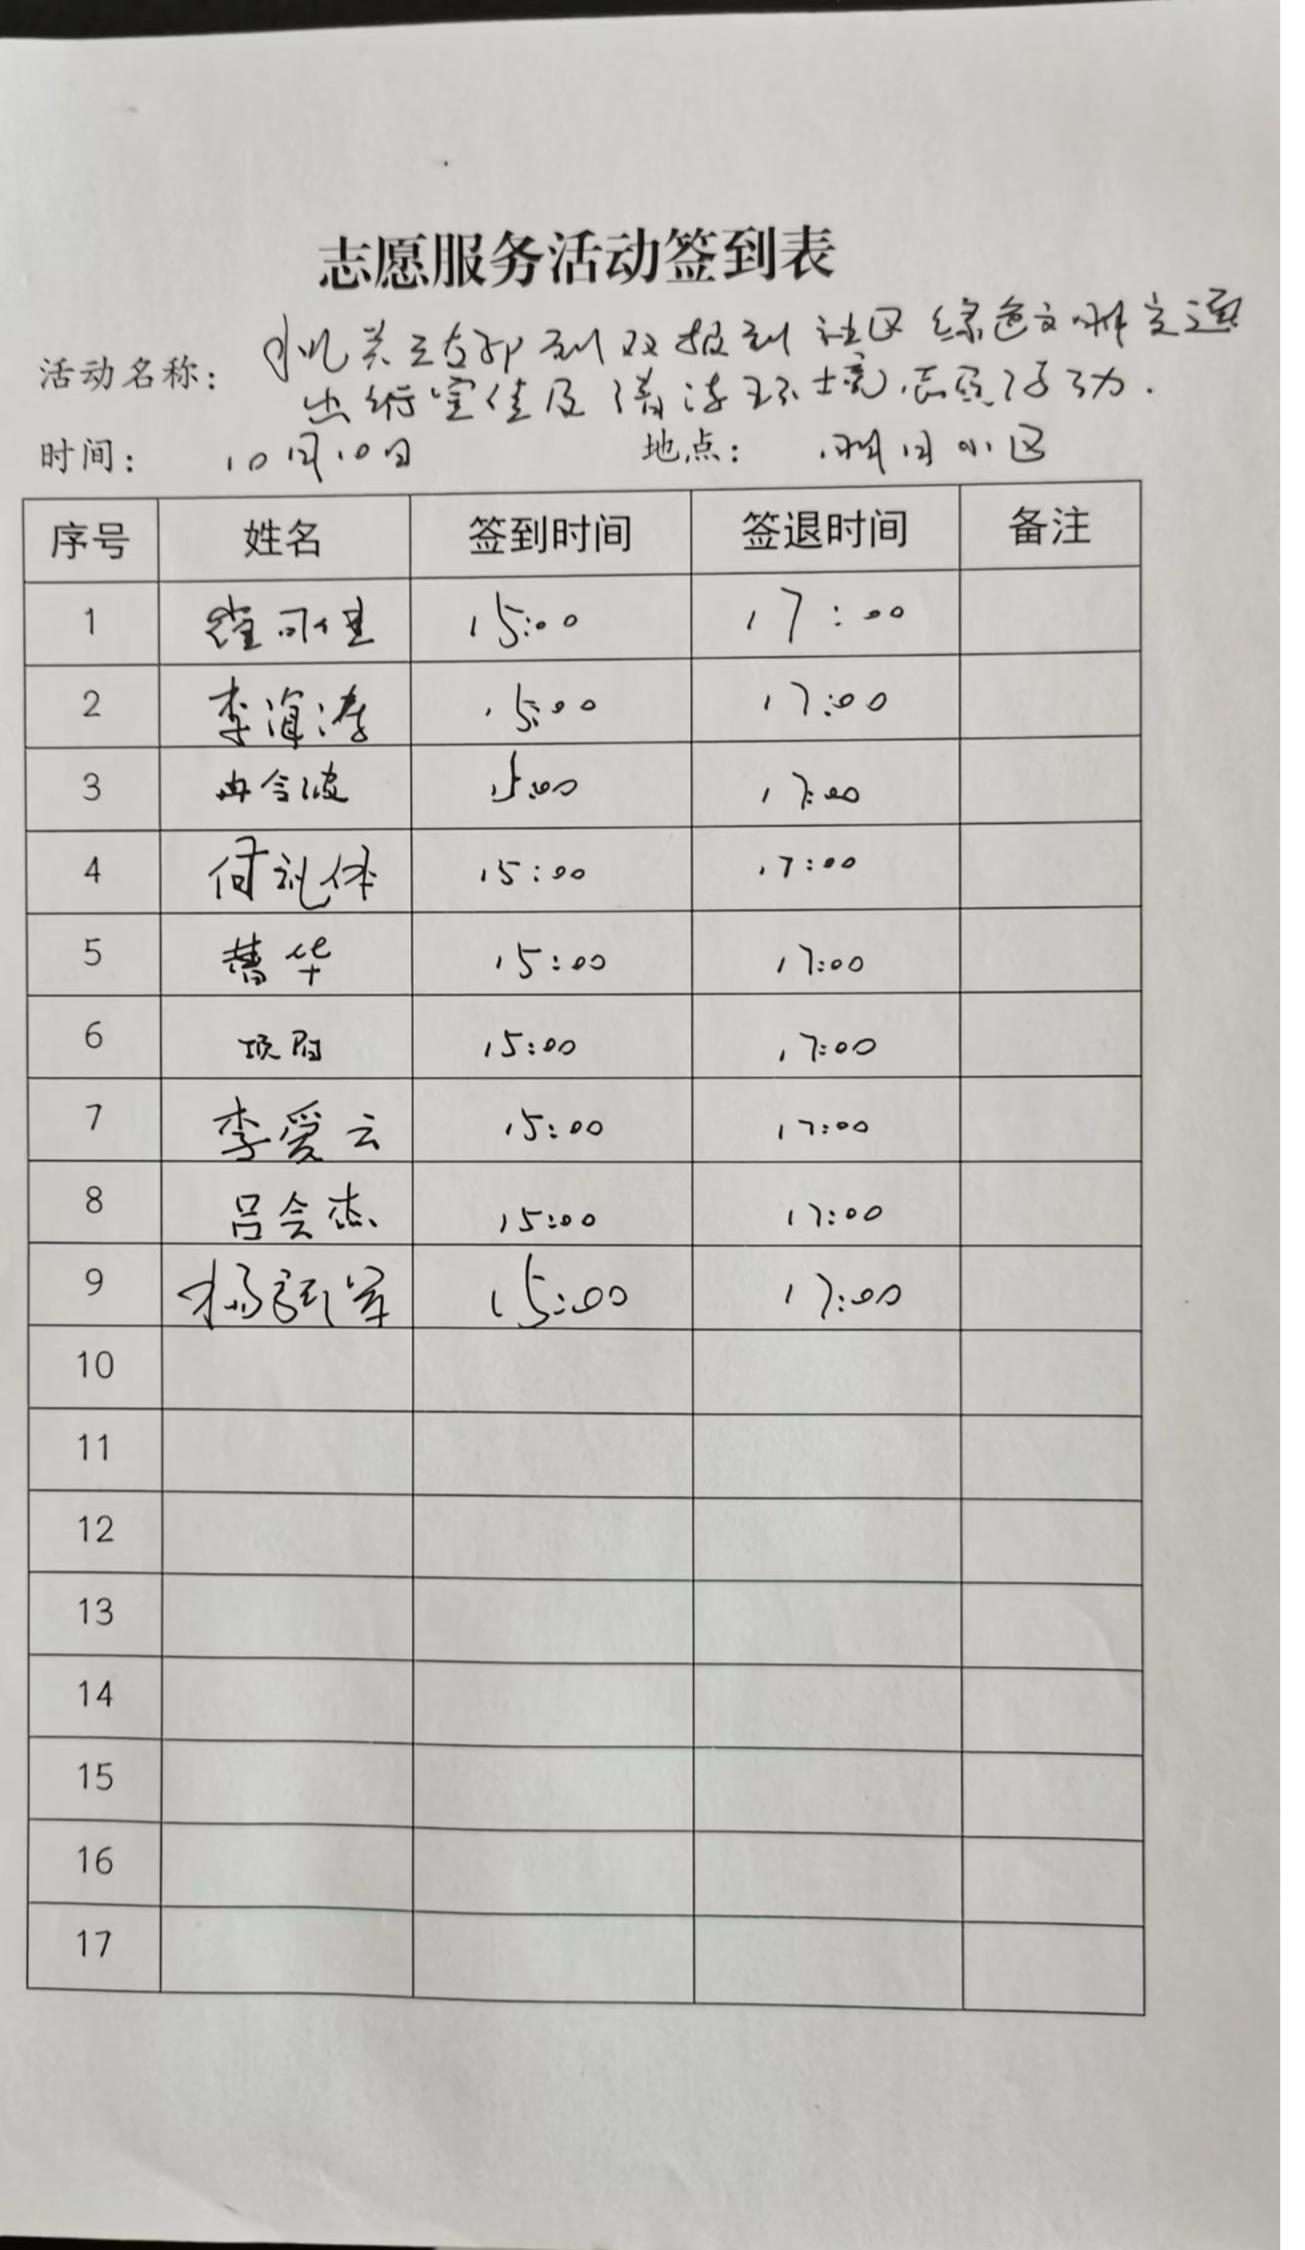 志愿服务活动签到表
活动名称: 机关支部到双报到社区绿色文明交通
出行宣传及清洁环境志愿活动.
时间: 10月10日 地点: 明月小区
序号 姓名 签到时间 签退时间 备注
1 15:00 17:00
2 李海涛 15:00 17:00
3 冉令波 15:00 17:00
4 何礼体 15:00 17:00
5 华 15:00 17:00
6 15:00 17:00
7 李爱云 15:00 17:00
8 吕会杰 15:00 17:00
9 杨军 15:00 17:00
10
11
12
13
14
15
16
17